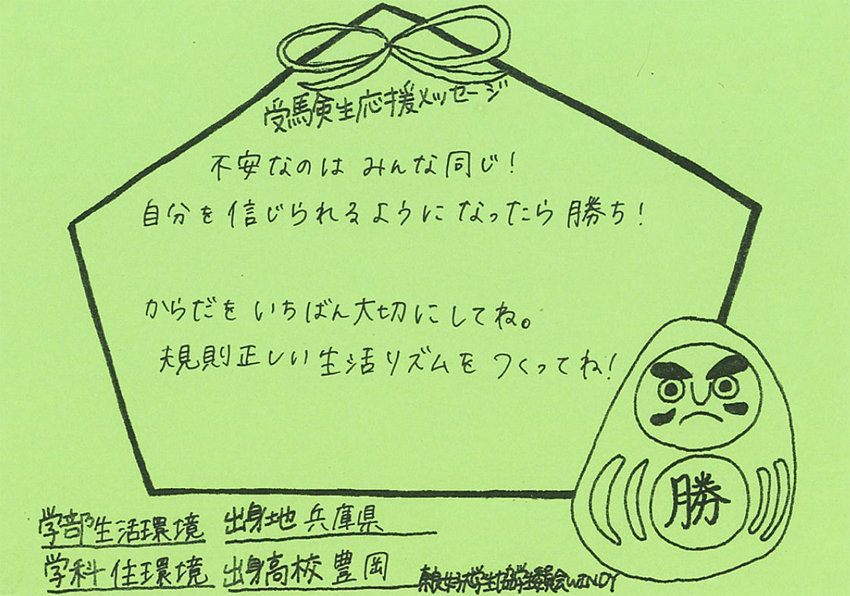 受験生応援メッセージ
不安なのは みんな同じ!
自分を信じられるようになったら勝ち!
からだを いちばん大切にしてね。
規則正しい生活リズムを つくってね!
勝
学部 生活環境 出身地 兵庫県
学科 住環境 出身高校 豊岡
奈良女子大学生協学生委員会WINDY